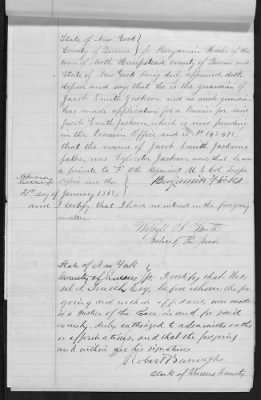 State of New York }
County of Queens } ss Benjamin Hicks of the
town of North Hempstead county of Queens and
State of New York being duly affirmed doth
depose and say that he is the guardian of
Jacob Smith Jackson and as such guardian
has made application for a Pension for said
Jacob Smith Jackson which is now pending
in the Pension Office and is No 142,491,
that the name of Jacob Smith Jacksons
father was Sylvester Jackson and that he was
a private in Regiment U S Col Troops
Affirmed
before me this
Benjamin Hicks
22d day of
January 1868
and I certify that I have no interest in the foregoing
matter
Justice of the Peace
State of New York }
County of Queens } ss I certify that
Smith Esq, before whom the fore
going and within affidavit was made
is a Justice of the Peace in and for said
county duly authorized to administer oaths
or affirmations, and that the foregoing
and within are his signatures
Robert Burroughs
Clerk of Queens County